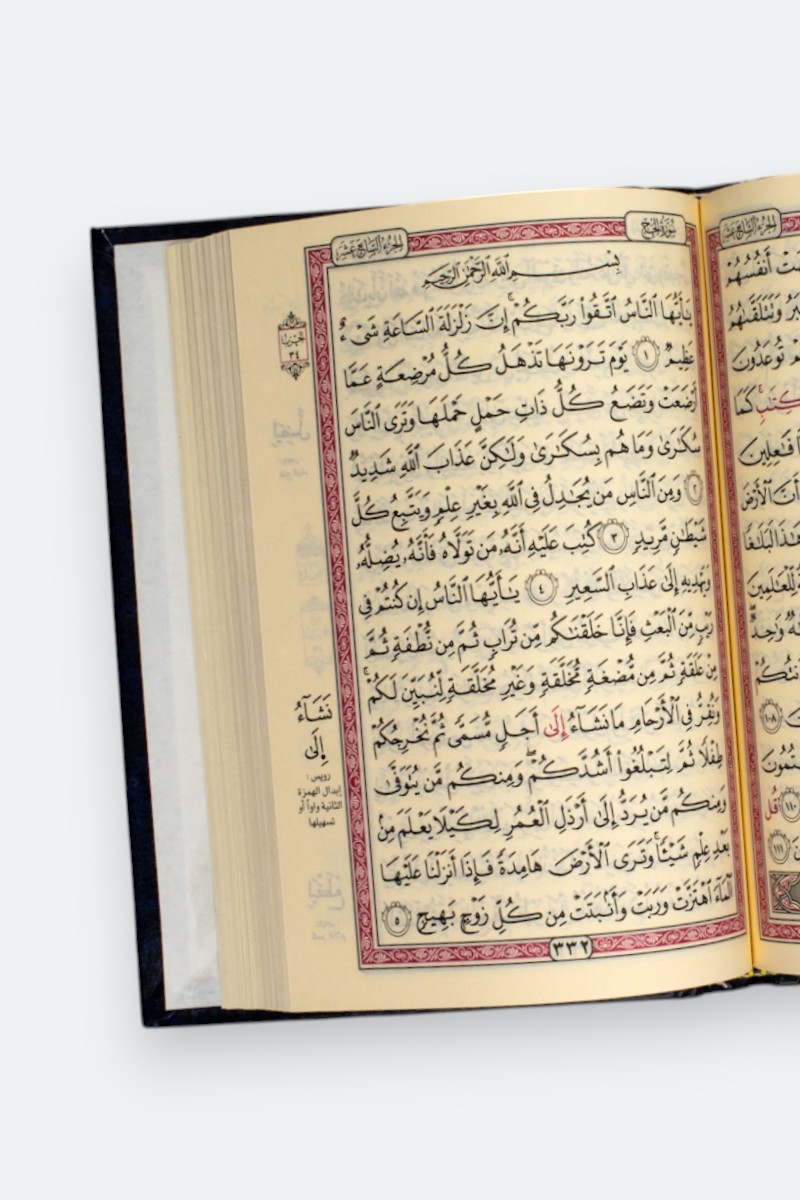 الجزء السابع عشر
أَنفُسُهُمْ
وَتَتَلَقَّىٰهُمُ
تُوعَدُونَ
كَمَا
فَٰعِلِينَ
أَنَّ ٱلْأَرْضَ
هَٰذَا لَبَلَٰغًا
لِّلْعَٰلَمِينَ
وَٰحِدٌ
١٠٨
١١٠ قُل
١١١
سورة الحج
الجزء السابع عشر
بِسْمِ ٱللَّهِ ٱلرَّحْمَٰنِ ٱلرَّحِيمِ
يَٰٓأَيُّهَا ٱلنَّاسُ ٱتَّقُوا۟ رَبَّكُمْ ۚ إِنَّ زَلْزَلَةَ ٱلسَّاعَةِ شَىْءٌ
عَظِيمٌ ١ يَوْمَ تَرَوْنَهَا تَذْهَلُ كُلُّ مُرْضِعَةٍ عَمَّآ
أَرْضَعَتْ وَتَضَعُ كُلُّ ذَاتِ حَمْلٍ حَمْلَهَا وَتَرَى ٱلنَّاسَ
سُكَٰرَىٰ وَمَا هُم بِسُكَٰرَىٰ وَلَٰكِنَّ عَذَابَ ٱللَّهِ شَدِيدٌ
٢ وَمِنَ ٱلنَّاسِ مَن يُجَٰدِلُ فِى ٱللَّهِ بِغَيْرِ عِلْمٍ وَيَتَّبِعُ كُلَّ
شَيْطَٰنٍ مَّرِيدٍ ٣ كُتِبَ عَلَيْهِ أَنَّهُۥ مَن تَوَلَّاهُ فَأَنَّهُۥ يُضِلُّهُۥ
وَيَهْدِيهِ إِلَىٰ عَذَابِ ٱلسَّعِيرِ ٤ يَٰٓأَيُّهَا ٱلنَّاسُ إِن كُنتُمْ فِى
رَيْبٍ مِّنَ ٱلْبَعْثِ فَإِنَّا خَلَقْنَٰكُم مِّن تُرَابٍ ثُمَّ مِن نُّطْفَةٍ ثُمَّ
مِنْ عَلَقَةٍ ثُمَّ مِن مُّضْغَةٍ مُّخَلَّقَةٍ وَغَيْرِ مُخَلَّقَةٍ لِّنُبَيِّنَ لَكُمْ ۚ
وَنُقِرُّ فِى ٱلْأَرْحَامِ مَا نَشَآءُ إِلَىٰٓ أَجَلٍ مُّسَمًّى ثُمَّ نُخْرِجُكُمْ
طِفْلًا ثُمَّ لِتَبْلُغُوٓا۟ أَشُدَّكُمْ ۖ وَمِنكُم مَّن يُتَوَفَّىٰ
وَمِنكُم مَّن يُرَدُّ إِلَىٰٓ أَرْذَلِ ٱلْعُمُرِ لِكَيْلَا يَعْلَمَ مِنۢ
بَعْدِ عِلْمٍ شَيْـًٔا ۚ وَتَرَى ٱلْأَرْضَ هَامِدَةً فَإِذَآ أَنزَلْنَا عَلَيْهَا
ٱلْمَآءَ ٱهْتَزَّتْ وَرَبَتْ وَأَنۢبَتَتْ مِن كُلِّ زَوْجٍۭ بَهِيجٍ ٥
٣٣٢
الحزب
٣٤
نَشَآءُ
إِلَىٰ
رويس:
إبدال الهمزة
الثانية واواً أو
تسهيلها